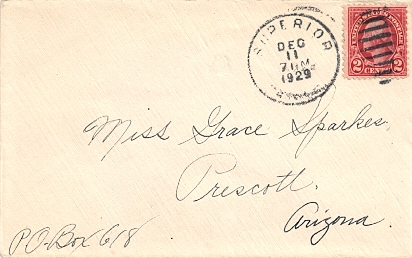 SUPERIOR
DEC
11
7 PM
1929
ARIZ.
UNITED STATES POSTAGE
2 CENTS 2
Miss Grace Sparkes
Prescott.
Arizona.
P.O. Box 618